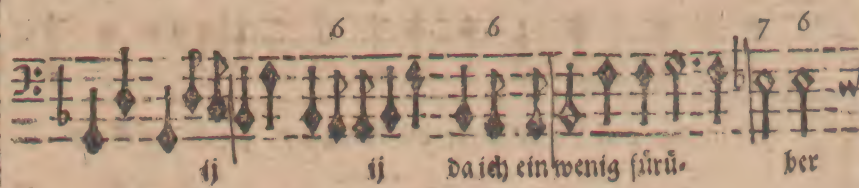 6 6 7 6
ij ij da ich ein wenig fürü- ber